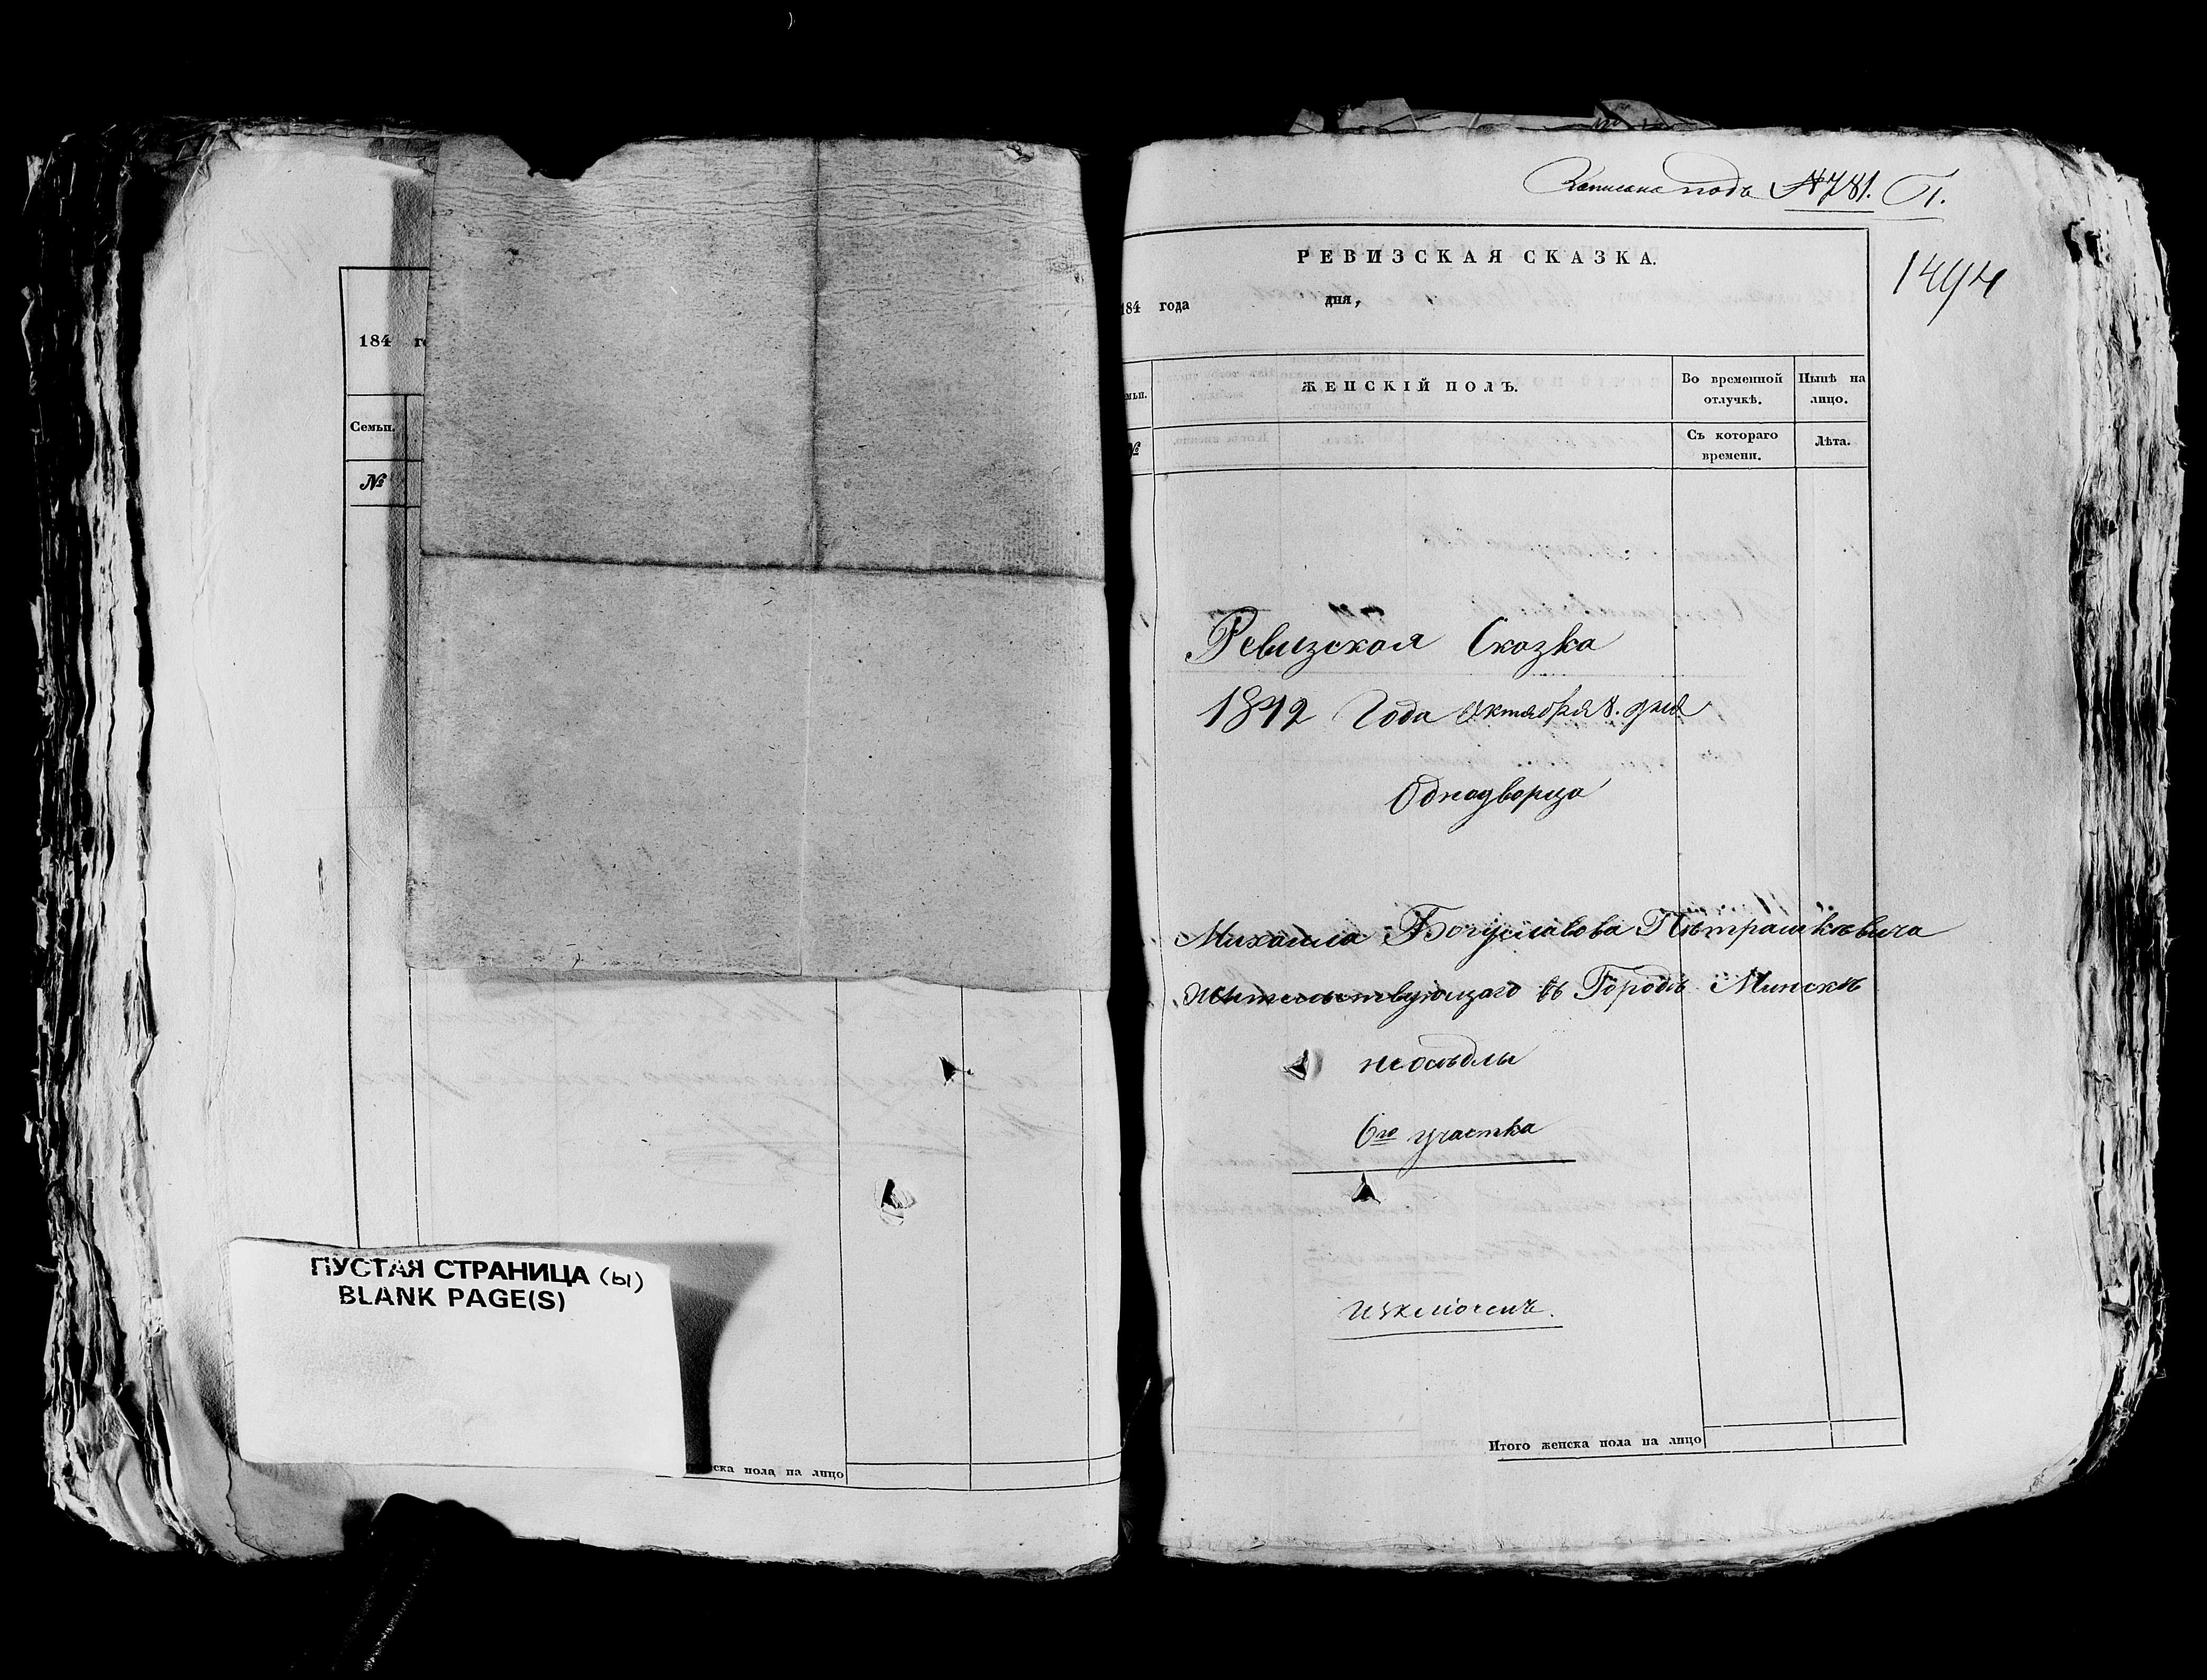 184 го
Семьи.
№
ПУСТАЯ СТРАНИЦА (ы)
BLANK PAGE(S)
ска пола на лицо
Записана подъ №781. П.
1494
РЕВИЗСКАЯ СКАЗКА.
184 года дня,
мьи. ЖЕНСКІЙ ПОЛЪ. Во временной отлучкѣ. Нынѣ на лицо.
№ Съ котораго времени. Лѣта.
Ревизская Сказка
1842 Года Октября 8. дня
Однодворца
Михаила Богуславова Пѣтрашкѣвича
жительствующаго въ Городѣ Минскѣ
неосѣдлы
6го участка
изключенъ.
Итого женска пола на лицо